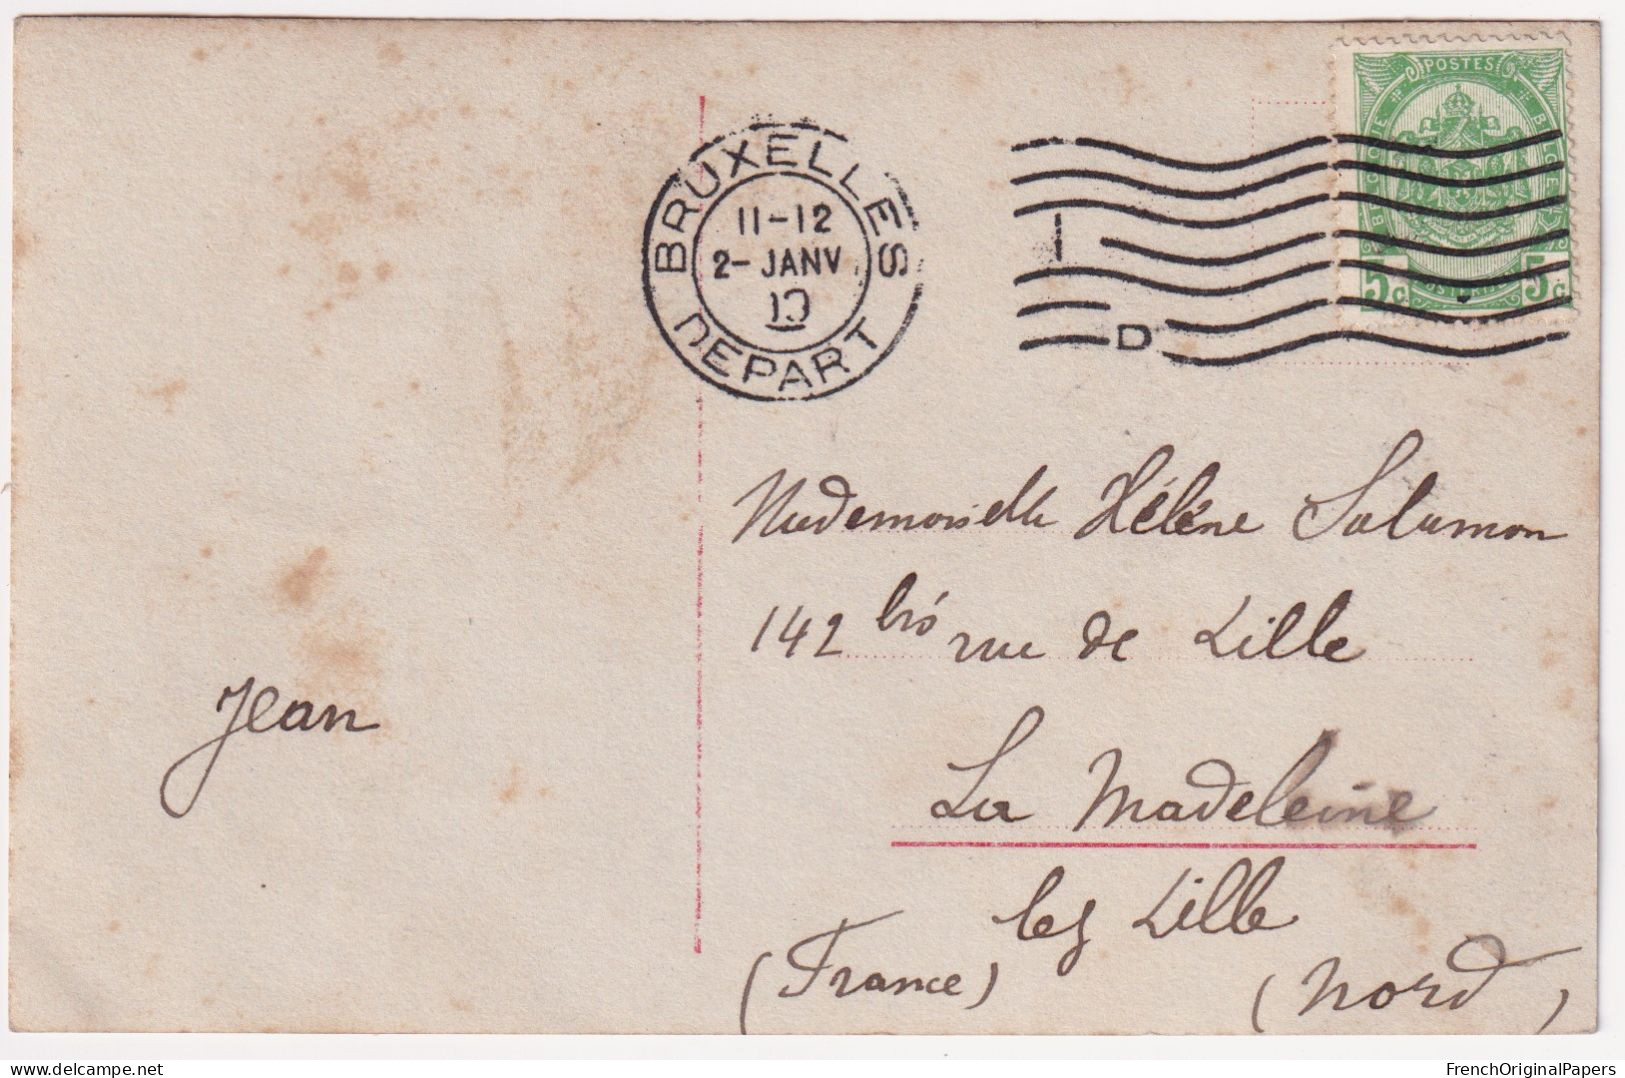 POSTES
5c 5c
BRUXELLES
11-12
2-JANV
10
DEPART
D
Mademoiselle Hélène Salamon
142 bis rue de Lille
Jean
La Madeleine
lez Lille
(France) (Nord)
delcampe.net
FrenchOriginalPapers